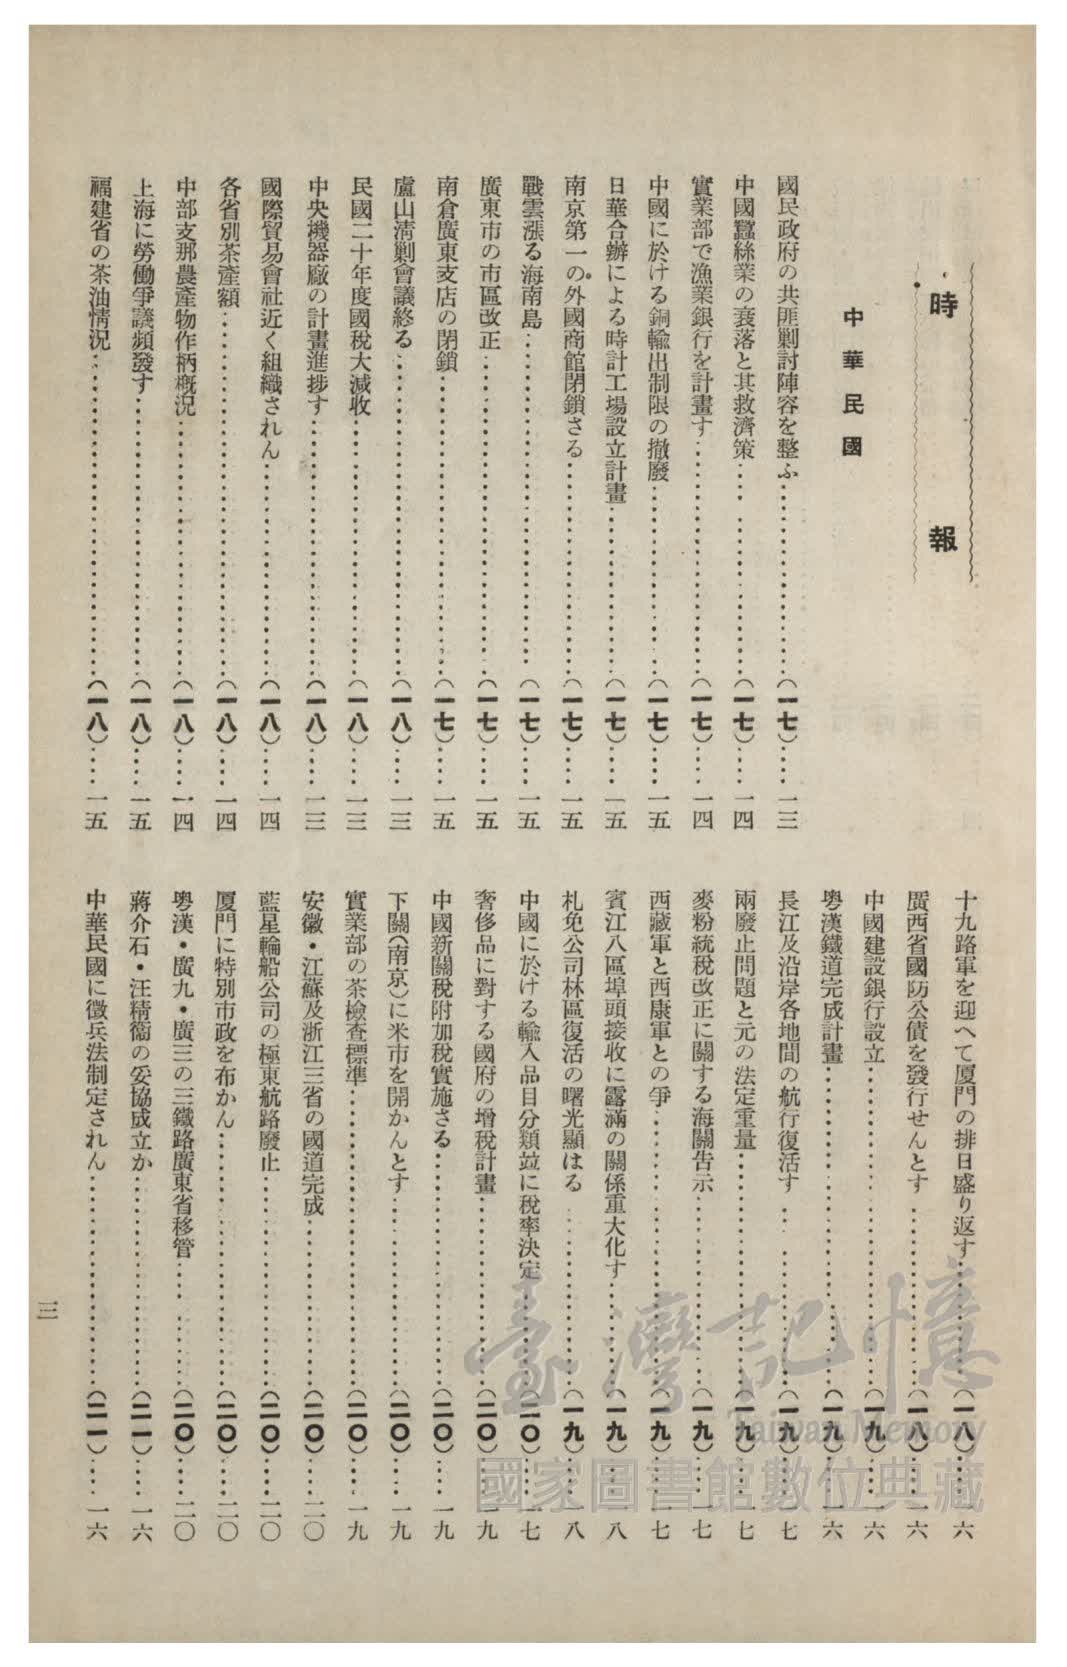 時報
中華民國
國民政府の共匪剿討陣容を整ふ……(一七)……一三
中國蠶絲業の衰落と其救濟策……(一七)……一四
實業部で漁業銀行を計畫す……(一七)……一四
中國に於ける銅輸出制限の撤廢……(一七)……一五
日華合辦による時計工場設立計畫……(一七)……一五
南京第一の外國商館閉鎖さる……(一七)……一五
戰雲漲る海南島……(一七)……一五
廣東市の市區改正……(一七)……一五
南倉廣東支店の閉鎖……(一七)……一五
廬山清剿會議終る……(一八)……一三
民國二十年度國稅大減收……(一八)……一三
中央機器廠の計畫進捗す……(一八)……一三
國際貿易會社近く組織されん……(一八)……一四
各省別茶產額……(一八)……一四
中部支那農產物作柄概況……(一八)……一四
上海に勞働爭議頻發す……(一八)……一五
福建省の茶油情況……(一八)……一五
十九路軍を迎へて厦門の排日盛り返す……(一八)……一六
廣西省國防公債を發行せんとす……(一八)……一六
中國建設銀行設立……(一九)……一六
粵漢鐵道完成計畫……(一九)……一六
長江及沿岸各地間の航行復活す……(一九)……一七
兩廢止問題と元の法定重量……(一九)……一七
麥粉統稅改正に關する海關告示……(一九)……一七
西藏軍と西康軍との爭……(一九)……一七
賓江八區埠頭接收に露滿の關係重大化す……(一九)……一八
札免公司林區復活の曙光顯はる……(一九)……一八
中國に於ける輸入品目分類竝に稅率決定……(二〇)……一七
奢侈品に對する國府の增稅計畫……(二〇)……一九
中國新關稅附加稅實施さる……(二〇)……一九
下關(南京)に米市を開かんとす……(二〇)……一九
實業部の茶檢查標準……(二〇)……一九
安徽・江蘇及浙江三省の國道完成……(二〇)……二〇
藍星輪船公司の極東航路廢止……(二〇)……二〇
厦門に特別市政を布かん……(二〇)……二〇
粵漢・廣九・廣三の三鐵路廣東省移管……(二〇)……二〇
蔣介石・汪精衞の妥協成立か……(二一)……一六
中華民國に徵兵法制定されん……(二一)……一六
三
臺灣記憶
Taiwan Memory
國家圖書館數位典藏